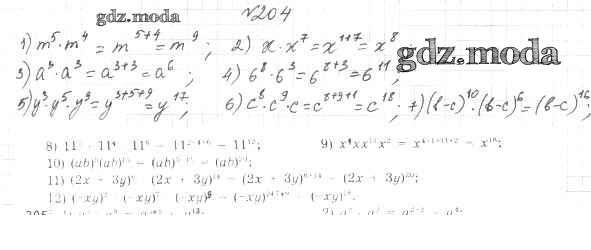 gdz.moda
№204
1) m⁵·m⁴ = m⁵⁺⁴ = m⁹; 2) x·x⁷ = x¹⁺⁷ = x⁸;
gdz.moda
3) a³·a³ = a³⁺³ = a⁶; 4) 6⁸·6³ = 6⁸⁺³ = 6¹¹;
5) y³·y⁵·y⁹ = y³⁺⁵⁺⁹ = y¹⁷; 6) c⁸·c⁹·c = c⁸⁺⁹⁺¹ = c¹⁸; 7) (b-c)¹⁰·(b-c)⁶ = (b-c)¹⁶;
8) 11² · 11⁴ · 11⁶ = 11²⁺⁴⁺⁶ = 11¹²; 9) x⁴xx¹¹x² = x⁴⁺¹⁺¹¹⁺² = x¹⁸;
10) (ab)⁵(ab)¹⁵ = (ab)⁵⁺¹⁵ = (ab)²⁰;
11) (2x + 3y)⁶ · (2x + 3y)¹⁴ = (2x + 3y)⁶⁺¹⁴ = (2x + 3y)²⁰;
12) (-xy) · (-xy) · (-xy)⁹ = (-xy) = (-xy)